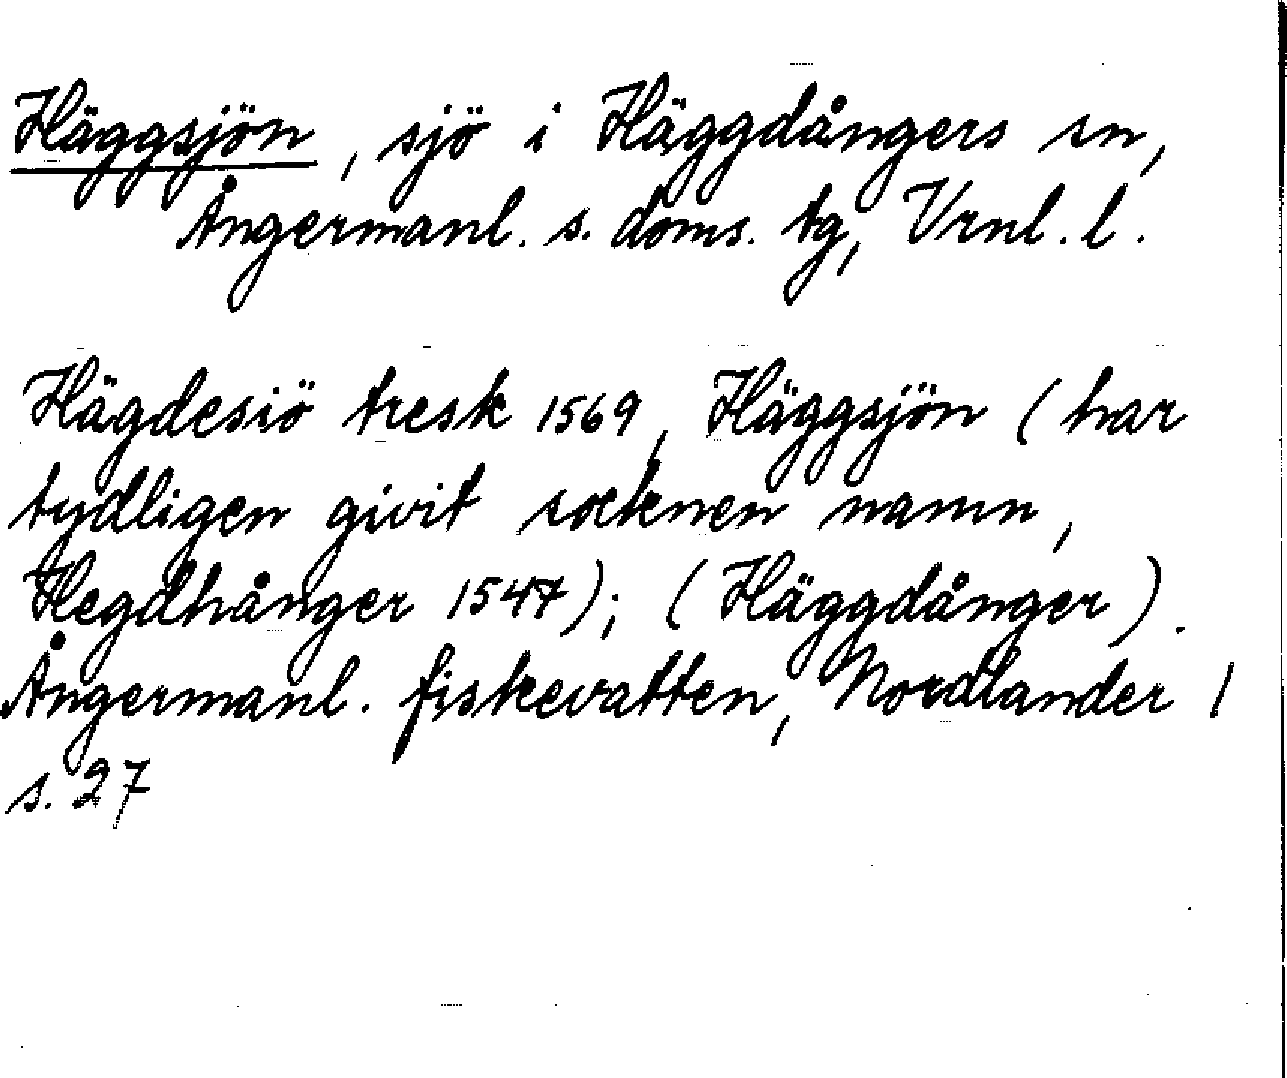 Häggsjön, sjö i Häggdångers sn,
Ångermanl. s. doms. tg, Vrnl. l.
Hägdesiö tresk 1569, Häggsjön (har
tydligen givit socknen namn,
Hegdhånger 1547); (Häggdånger).
Ångermanl. fiskevatten, Nordlander 1
s. 27